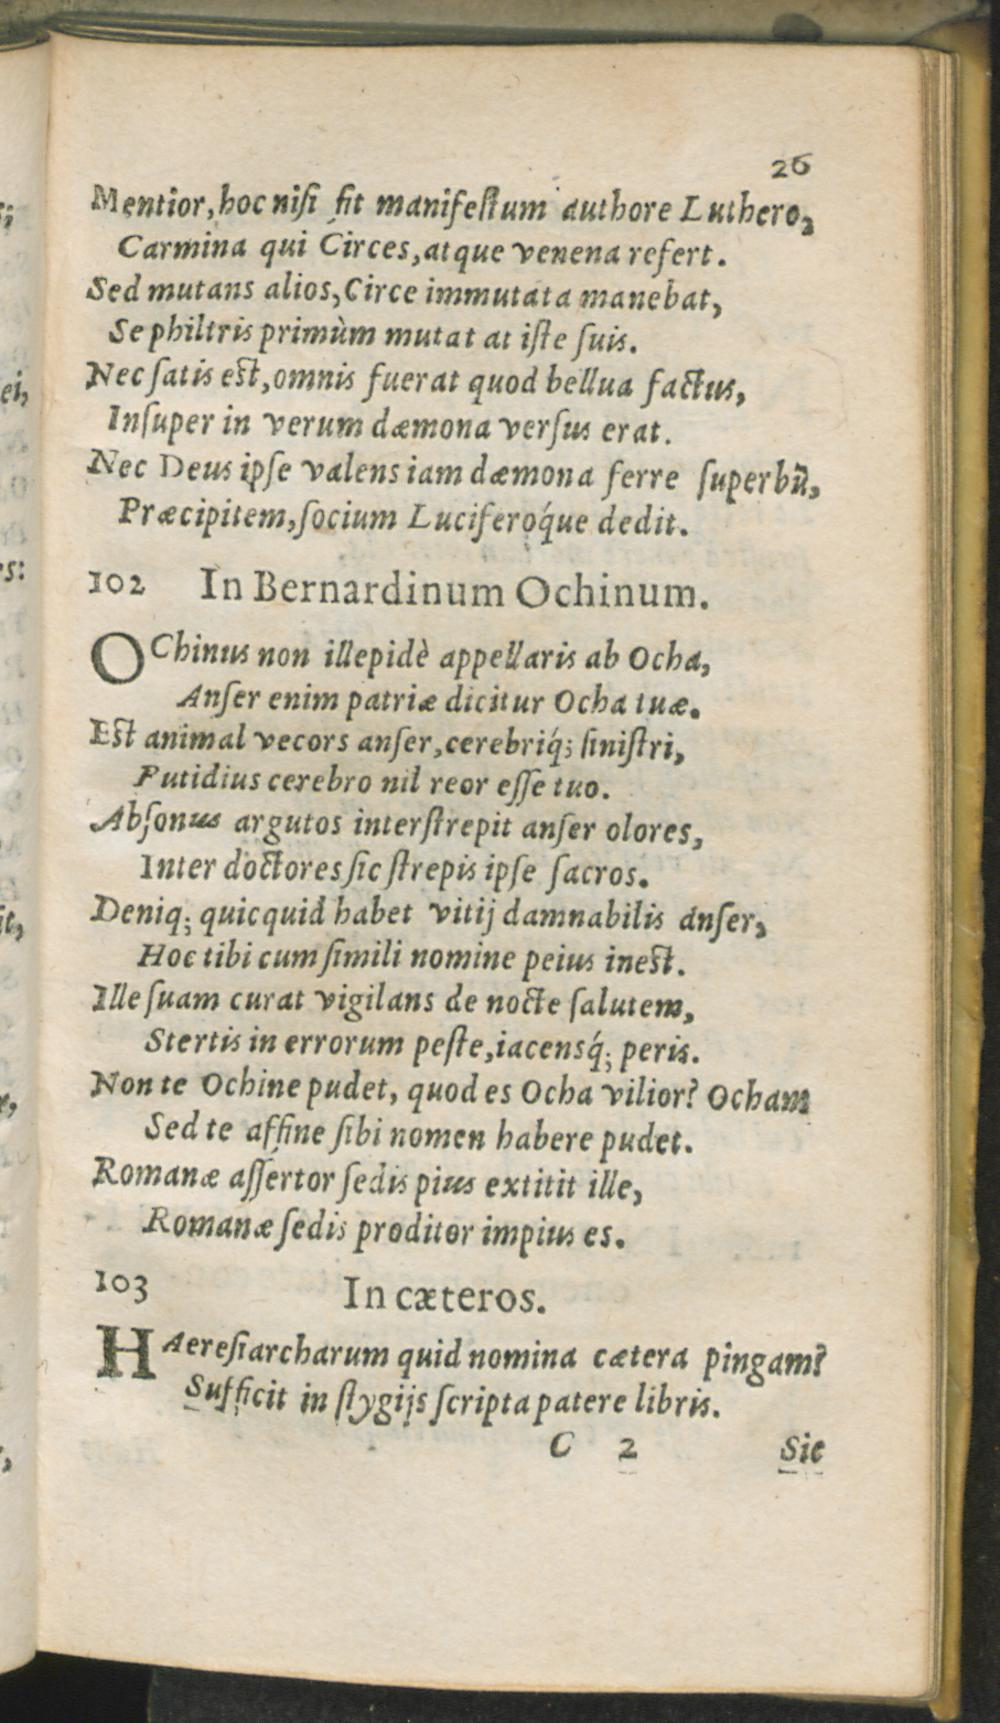 26
Mentior, hoc nisi fit manifestum authore Luthero,
Carmina qui Circes, atque venena refert.
Sed mutans alios, Circe immutata manebat,
Se philtris primùm mutat at iste suis.
Nec satis est, omnis fuerat quod bellua factus,
Insuper in verum dæmona versus erat.
Nec Deus ipse valens iam dæmona ferre superbū,
Præcipitem, socium Luciferóque dedit.
102 In Bernardinum Ochinum.
OChinus non illepidè appellaris ab Ocha,
Anser enim patriæ dicitur Ocha tuæ.
Est animal vecors anser, cerebriq́; sinistri,
Putidius cerebro nil reor esse tuo.
Absonus argutos interstrepit anser olores,
Inter doctores sic strepis ipse sacros.
Deniq; quicquid habet vitij damnabilis anser,
Hoc tibi cum simili nomine peius inest.
Ille suam curat vigilans de nocte salutem,
Stertis in errorum peste, iacensq́; peris.
Non te Ochine pudet, quod es Ocha vilior? Ocham
Sed te affine sibi nomen habere pudet.
Romanæ assertor sedis pius extitit ille,
Romanæ sedis proditor impius es.
103 In cæteros.
HAeresiarcharum quid nomina cætera pingam?
Sufficit in stygijs scripta patere libris.
C 2 Sic